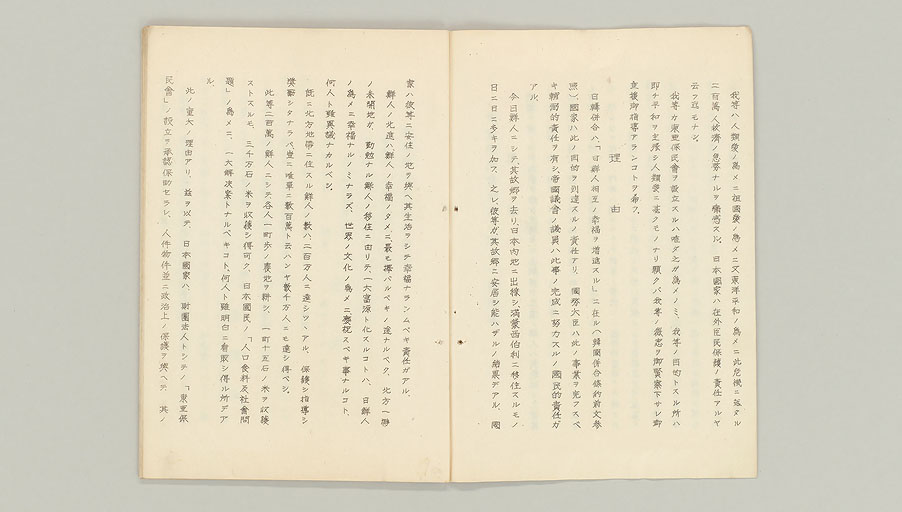 我等ハ人類愛ノ為メニ祖國愛ノ為メニ又東洋平和ノ為メニ此危機ニ落タル
二百萬人救濟ノ急務ナルヲ痛感スル、日本國家ハ在外臣民保護ノ責任アルヤ
云フ迄モナシ、
我等カ東亜保民會ヲ設立スルハ唯ダ之ガ為メノミ、我等ノ目的トスル所ハ
即チ平和ヲ主張シ人類愛ニ基クモノナリ願クバ我等ノ微志ヲ御賢察下サレ御
直接御指導アランコトヲ希フ、
理由
日韓併合ハ、「日鮮人相互ノ幸福ヲ増進スル」ニ在ル(韓國併合條約前文參
照)、國家ハ此ノ目的ヲ到達スルノ責任アリ、國務大臣ハ此ノ事業ヲ完フスベ
キ輔弼的責任ヲ有シ、帝國議會ノ議員ハ此事ノ完成ニ努力スルノ國民的責任ガ
アル、
今日鮮人ニシテ、其故郷ヲ去リ、日本内地ニ出稼シ、滿蒙西伯利ニ移住スルモノ
日ニ日ニ多キヲ加フ、之レ彼等ガ、其故郷ニ安居シ能ハザルノ結果デアル、國
家ハ彼等ニ安住ノ地ヲ與ヘ其生活ヲシテ幸福ナランムベキ責任ガアル、
鮮人ノ北進ハ鮮人ノ幸福ノタメニ最モ擇バルベキノ途ナルベク、北方一帶
ノ未開地ガ、勤勉ナル鮮人ノ移住ニ由リテ、一大富源ト化スルコトハ、日鮮人
ノ為メニ幸福ナルノミナラズ、世界ノ文化ノ為メニ慶祝スベキ事ナルコト、
何人ト雖異議ナカルベシ、
既ニ北方地帶ニ住スル鮮人ノ數ハ、二百万人ニ達シツヽアル、保護シ指導シ
奬勵シタナラバ、豈ニ唯單ニ數百萬ト云ハンヤ數千万人ニモ達シ得ベシ、
此等二百萬ノ鮮人ニシテ、各人一町歩ノ農地ヲ耕シ、一町十五石ノ米ヲ收穫
ストスルモ、三千万石ノ米ヲ收穫シ得可ク、日本國民ノ「人口食料及社會問
題」ノ為メニ、一大解決案トナルベキコト、何人ト雖明白ニ看取シ得ル所デア
ル、
此ノ重大ノ理由アリ、茲ヲ以テ、日本國家ハ、財團法人トシテノ「東亜保
民會」ノ設立ヲ承認保助セラレ、人件物件並ニ政治上ノ保護ヲ與ヘテ、其ノ